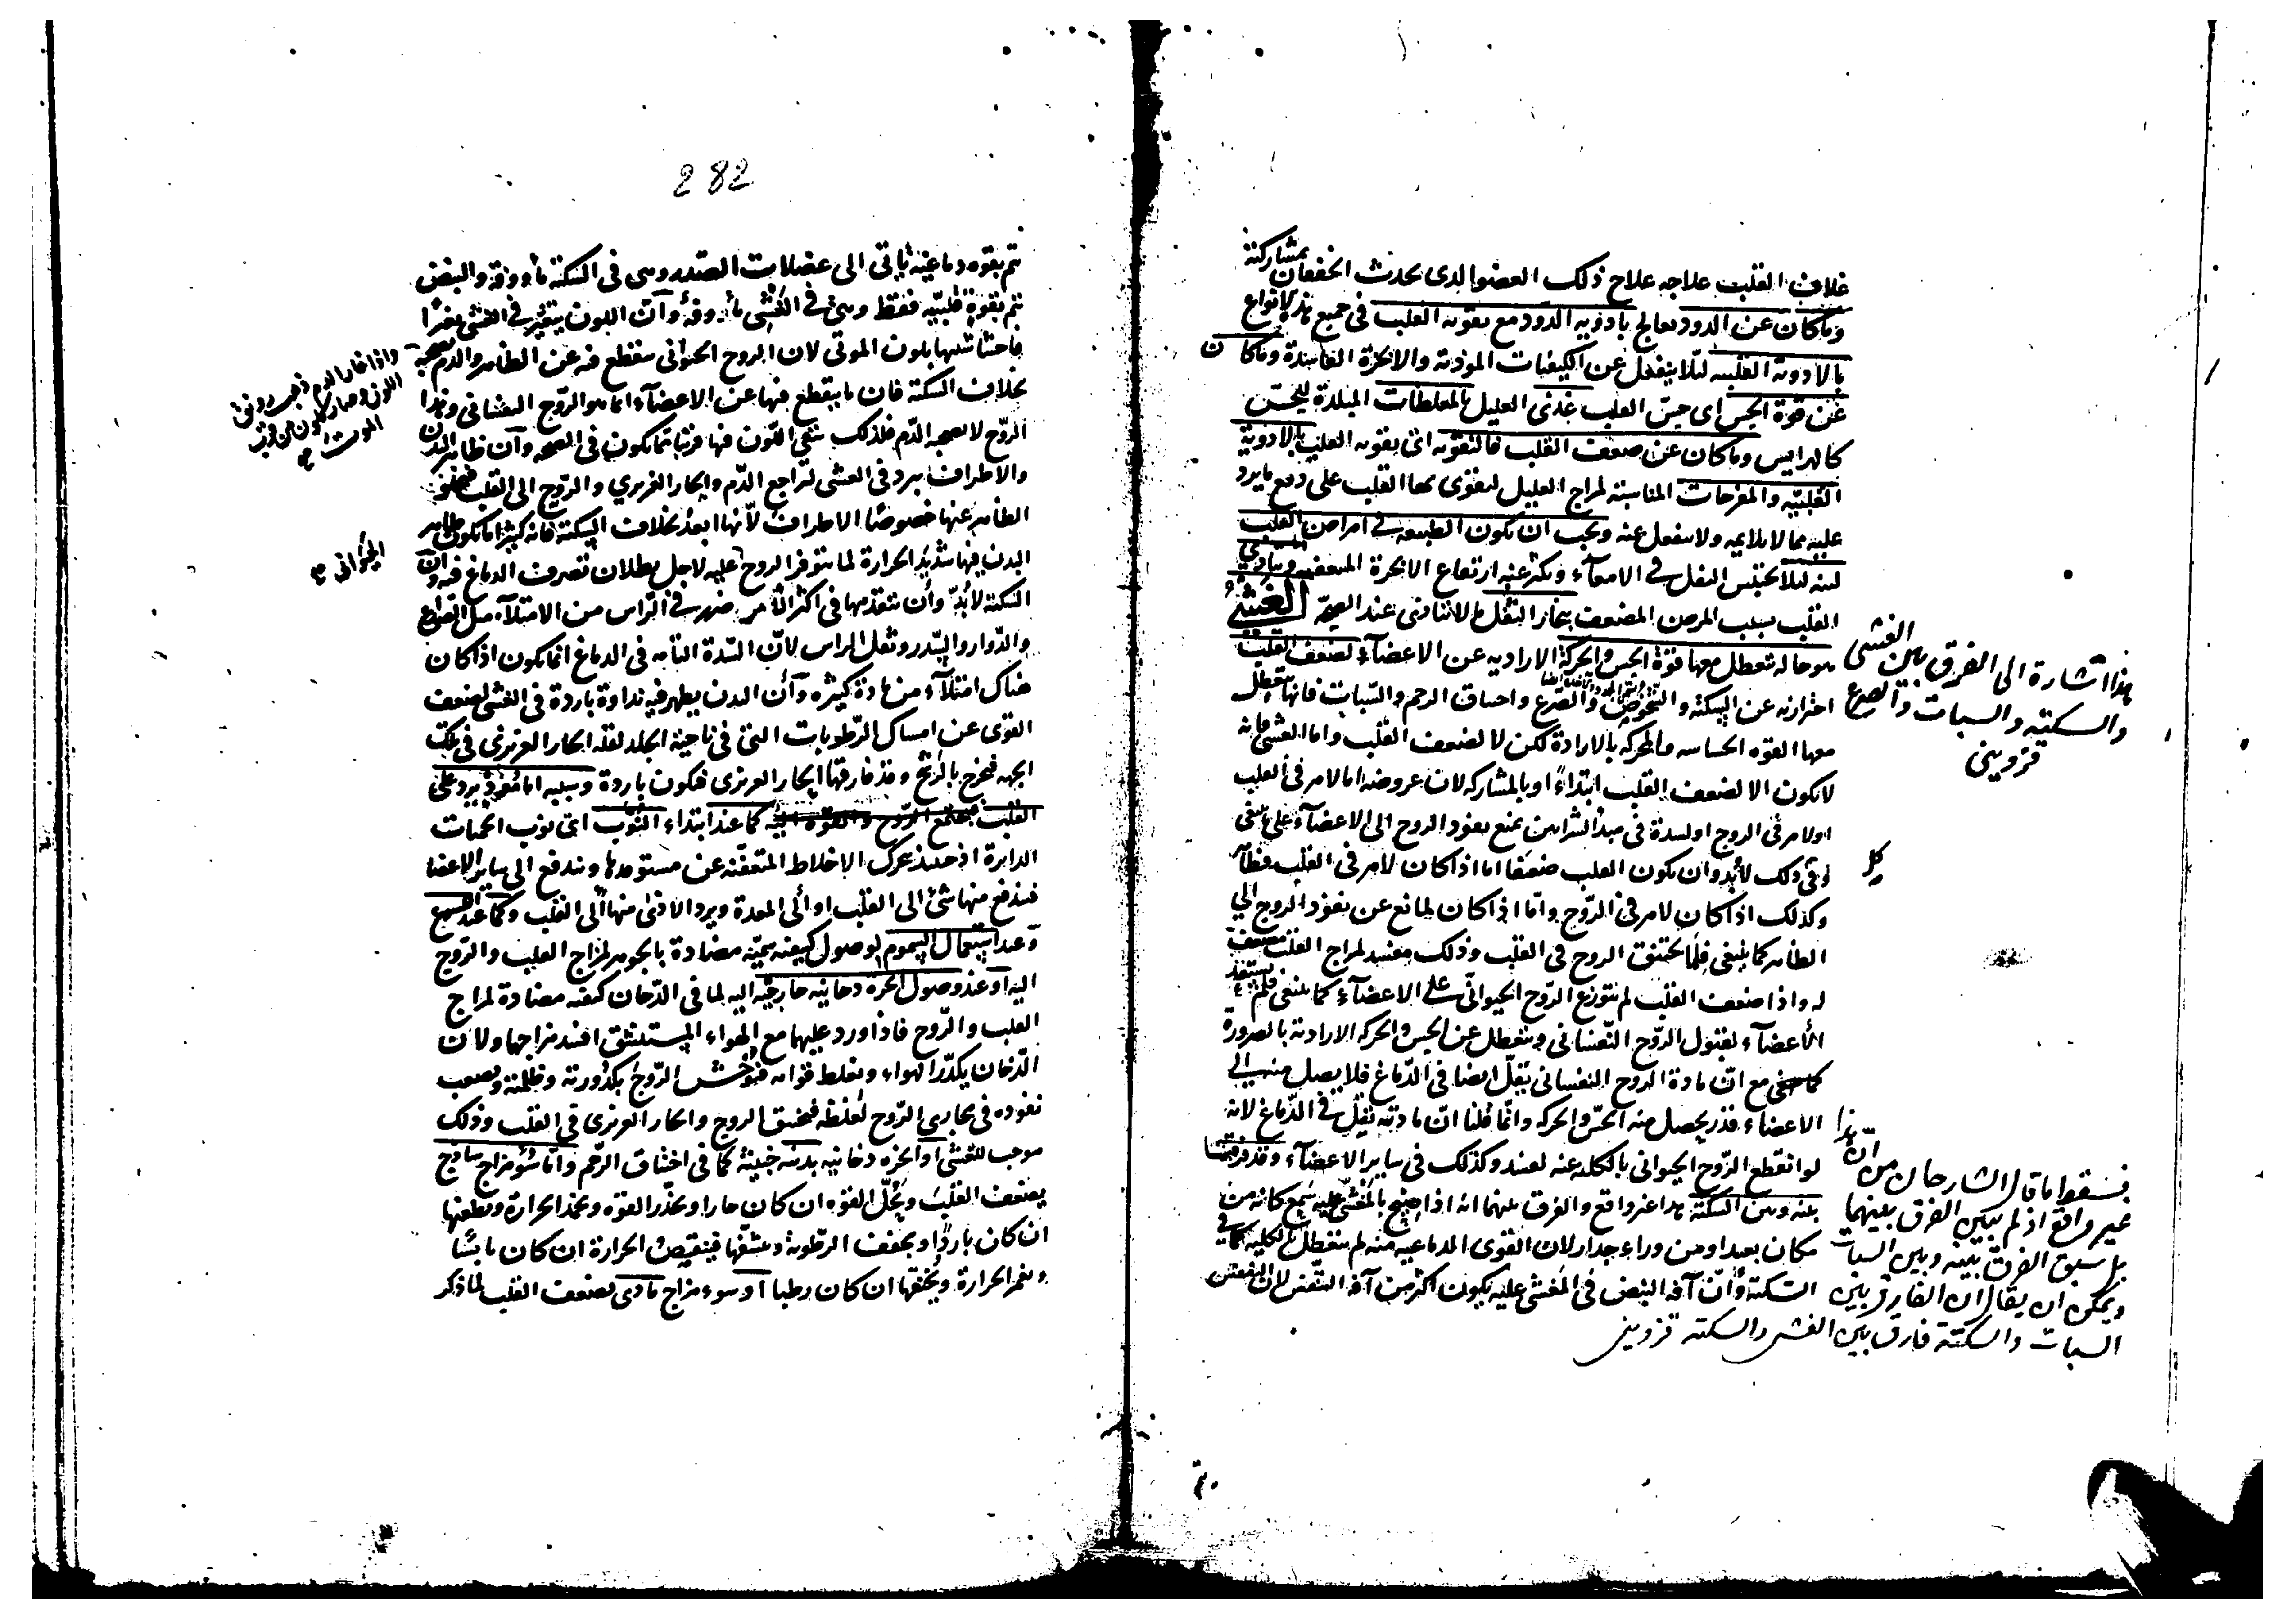 غلاف القلب علاجه علاج ذلك العضو الذى يحدث الخفقان بمشاركته
وما كان عن الدود يعالج بادوية الدود مع تقوية القلب فى جميع هذه الانواع
بالادوية القلبية لئلا ينفعل عن الكيفيات الموذية والابخرة الفاسدة وما كان
عن قوة الحس اى حس القلب غذى العليل بالمغلظات المبلدة للحس
كالهرايس وما كان عن ضعف القلب فالتقوية اى تقوية القلب بالادوية
القلبية والمفرحات المناسبة لمزاج العليل ليقوى بها القلب على دفع ما يرد
عليه مما لا يلايمه ولا ينفعل عنه ويجب ان تكون الطبيعة فى امراض القلب
لينة لئلا يحتبس الثفل فى الامعاء ويكثر عنه ارتفاع الابخرة المتعفنة ويتاذى
القلب بسبب المرض المضعف ببخار الثفل ما لا يتاذى عند الصحة الغشى
هو حالة تتعطل معها قوة الحس والحركة الارادية عن الاعضاء لضعف القلب
احترازية عن السكتة والصرع واختناق الرحم والسبات فانها تتعطل
معها القوة الحساسة والمحركة بالارادة لكن لا لضعف القلب واما الغشى فانه
لا يكون الا لضعف القلب ابتداءً او بالمشاركة لان عروضه اما لامر فى القلب
او لامر فى الروح او لسدة فى مبدأ الشرايين تمنع نفوذ الروح الى الاعضاء على ما ينبغى
وفى ذلك لا بد وان يكون القلب ضعيفا اما اذا كان لامر فى القلب فظاهر
وكذلك اذا كان لامر فى الروح واما اذا كان لمانع عن نفوذ الروح الى
الظاهر كما ينبغى فلما يختنق الروح فى القلب وذلك مفسد لمزاج القلب مضعف
له واذا ضعف القلب لم يتوزع الروح الحيوانى على الاعضاء كما ينبغى فلم يستعد
الاعضاء لقبول الروح النفسانى ويتعطل عن الحس والحركة الارادية بالضرورة
مع ان مادة الروح النفسانى يقل ايضا فى الدماغ فلا يصل منه الى
الاعضاء قدر يحصل منه الحس والحركة وانما قلنا ان مادته تقل فى الدماغ لانه
لو انقطع الروح الحيوانى بالكلية عنه لفسد وكذلك فى ساير الاعضاء وقد فرقنا
بينه وبين السكتة هذا غير واقع والفرق بينهما انه اذا صيح بالمغشى عليه سمع كانه من
مكان بعيد او من وراء جدار لان القوى الدماعية منه لم تتعطل بالكلية كما فى
السكتة وأن آفة النبض فى المغشى عليه يكون اكثر من آفة التنفس لان التنفس
هذا اشارة الى الفرق بين الغشى
والسكتة والسبات والصرع
قزوينى
كل
ان هذا
فسقط ما قال الشارحان من
غير واقع اذ لم يبين الفرق بينهما
بل سبق الفرق بينه وبين السبات
ويمكن ان يقال ان الفارق بين
السبات والسكتة فارق بين الغشى والسكتة قزوينى
282
تتم بقوة دماغية تأتى الى عضلات الصدر وهى فى السكتة مأووفة والنبض
تتم بقوة قلبية فقط وهى فى الغشى مأووفة وأن اللون يتغير فى الغشى تغيرا
فاحشا شبيها بلون الموتى لان الروح الحيوانى ينقطع فيه عن الظاهر والدم يصحبه
بخلاف السكتة فان ما ينقطع فيها عن الاعضاء انما هو الروح النفسانى وهذا
الروح لا يصحبه الدم فلذلك يبقى اللون فيها قريبا مما يكون فى الصحة وأن ظاهر البدن
والاطراف يبرد فى الغشى لتراجع الدم والحار الغريزى والروح الى القلب فيخلو
الظاهر عنها خصوصًا الاطراف لأنها ابعد بخلاف السكتة فانه كثيرًا ما يكون ظاهر
البدن فيها شديد الحرارة لما يتوفر الروح عليه لاجل بطلان تصرف الدماغ فيه وأن
السكتة لا بد وأن يتقدمها فى اكثر الأمر ضرر فى الراس من الامتلاء مثل الصداع
والدوار والسدر وثقل الراس لان السدة التامة فى الدماغ انما يكون اذا كان
هناك امتلاء من مادة كثيرة وأن البدن يظهر فيه نداوة باردة فى الغشى لضعف
القوى عن امساك الرطوبات التى فى ناحية الجلد لقلة الحار الغريزى فى تلك
الجهة فيخرج بالرشح وقد فارقها الحار الغريزى فيكون باردة وسببه اما موذ يرد على
القلب فيجتمع الروح والقوة اليه كما عند ابتداء النوب اى نوب الحميات
الدايرة اذ حينئذ تتحرك الاخلاط المتعفنة عن مستوقدها ويندفع الى ساير الاعضا
فيندفع منها شئ الى القلب او الى المعدة ويرد الاذى منها الى القلب وكما عند اللسع
وعند استعمال السموم لوصول كيفية سمية مضادة بالجوهر لمزاج القلب والروح
اليه او عند وصول ابخرة دخانية خارجية اليه لما فى الدخان كيفية مضادة لمزاج
القلب والروح فاذا ورد عليهما مع الهواء المستنشق افسد مزاجهما ولان
الدخان يكدر الهواء ويغلظ قوامه فيوحش الروح بكدورته وظلمته ويصعب
نفوذه فى مجارى الروح لغلظه فيختنق الروح والحار الغريزى فى القلب وذلك
موجب للغشى او ابخرة دخانية بدنية خبيثة كما فى اختناق الرحم واما سوء مزاج ساذج
يضعف القلب ويحلل القوة ان كان حارا ويخدر القوة ويخمد الحرارة ويطفئها
ان كان باردًا ويجفف الرطوبة وينشفها فينقص الحرارة ان كان يابسًا
ويغمر الحرارة ويخنقها ان كان رطبا او سوء مزاج مادى يضعف القلب لما ذكر
واذا غار الدم ذهب رونق
اللون وصار كلون من قرب
الموت
الحيوانى